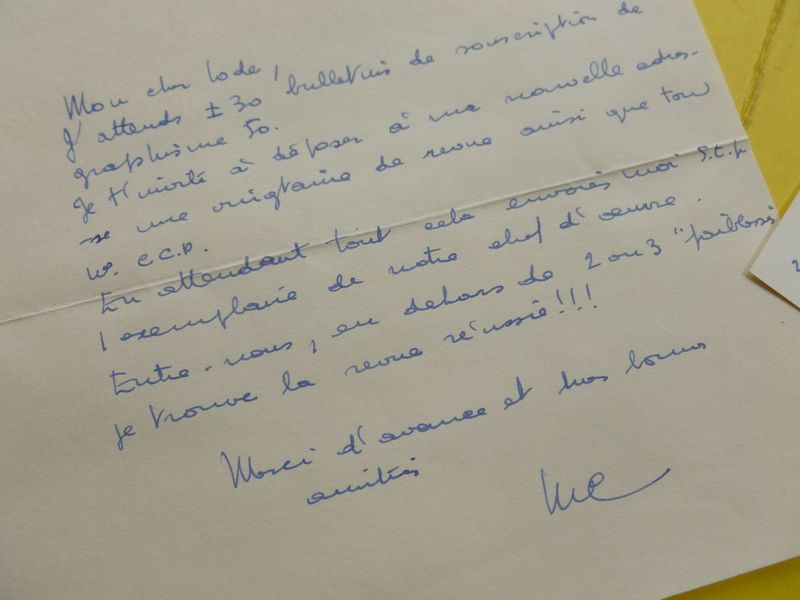 Mon cher Lode,
J'attends ± 30 bulletins de souscription de
graphisme 50.
Je t'invite à déposer à ma nouvelle adres-
se une vingtaine de revue ainsi que ton
n° C.C.P.
En attendant tout cela envoies moi S.t.p
1 exemplaire de notre chef d'œuvre.
Entre-nous, en dehors de 2 ou 3 "faiblesses
je trouve la revue réussie!!!
Merci d'avance et mes bonnes
amitiés